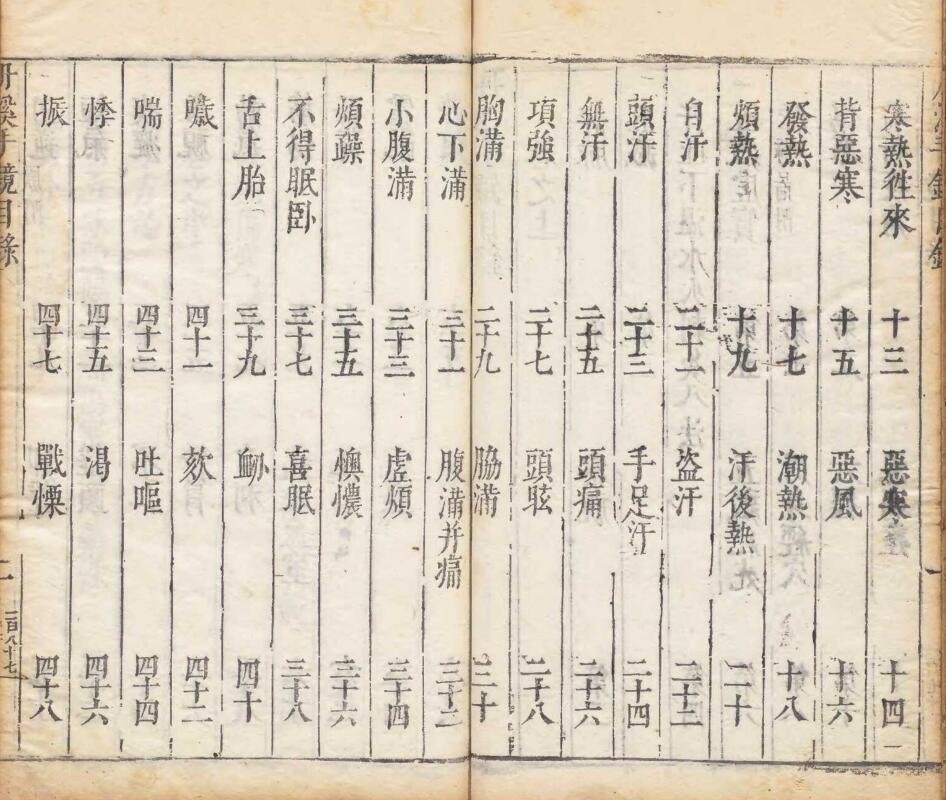 寒熱往來 十三 惡寒 十四
背惡寒 十五 惡風 十六
發熱 十七 潮熱 十八
煩熱 十九 汗後熱 二十
自汗 二十一 盜汗 二十二
頭汗 二十三 手足汗 二十四
無汗 二十五 頭痛 二十六
項強 二十七 頭眩 二十八
胸滿 二十九 脇滿 三十
心下滿 三十一 腹滿并痛 三十二
小腹滿 三十三 虛煩 三十四
煩躁 三十五 懊憹 三十六
不得眠卧 三十七 喜眠 三十八
舌上胎 三十九 衂 四十
噦 四十一 欬 四十二
喘 四十三 吐嘔 四十四
悸 四十五 渴 四十六
振 四十七 戰慄 四十八
手鏡目錄 二 二百八十七